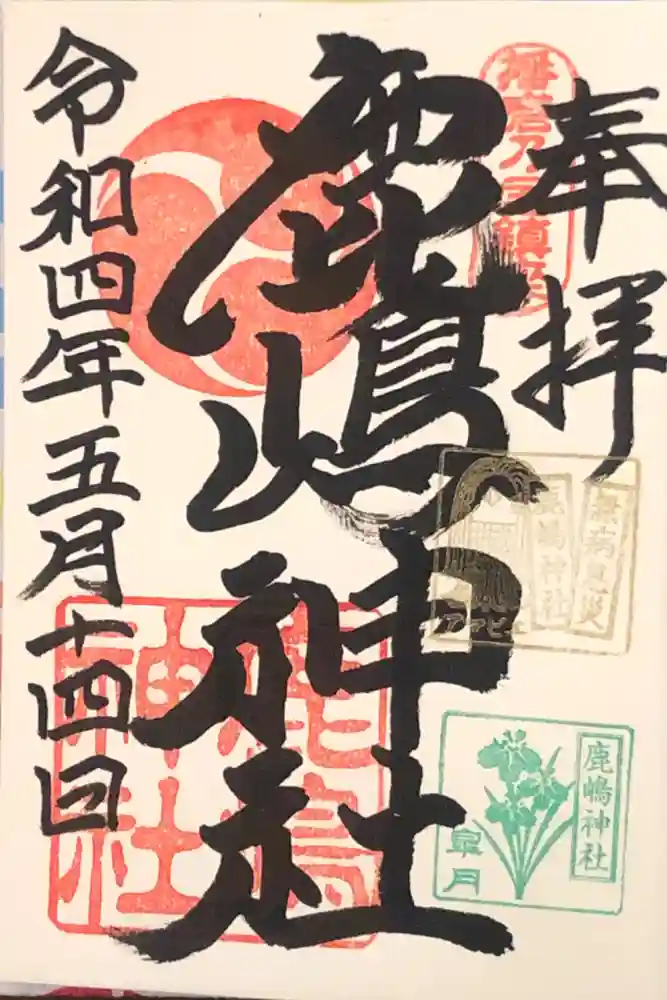 奉拝
鹿嶋神社
令和四年五月十四日
鹿嶋神社
無病息災
鹿嶋神社
アマビエ
鹿嶋神社
皐月